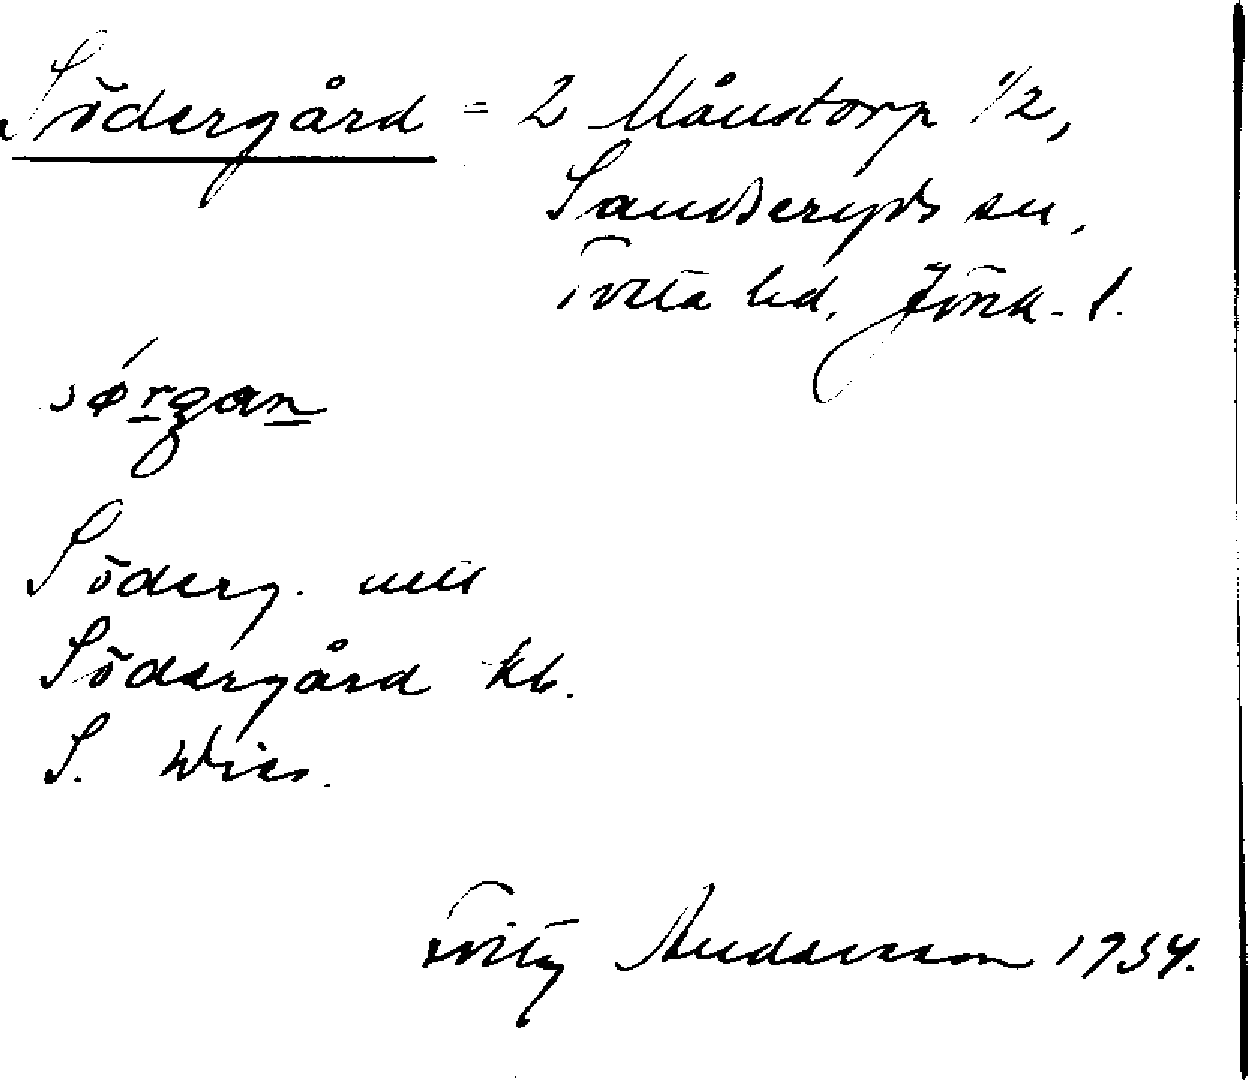 Södergård = 2 Månstorp 1/2,
Sandseryds sn,
Tveta hd, Jönk. l.
sørgan
Söderg. utt
Södergård kb.
S. Wies.
Fritz Andersson 1934.